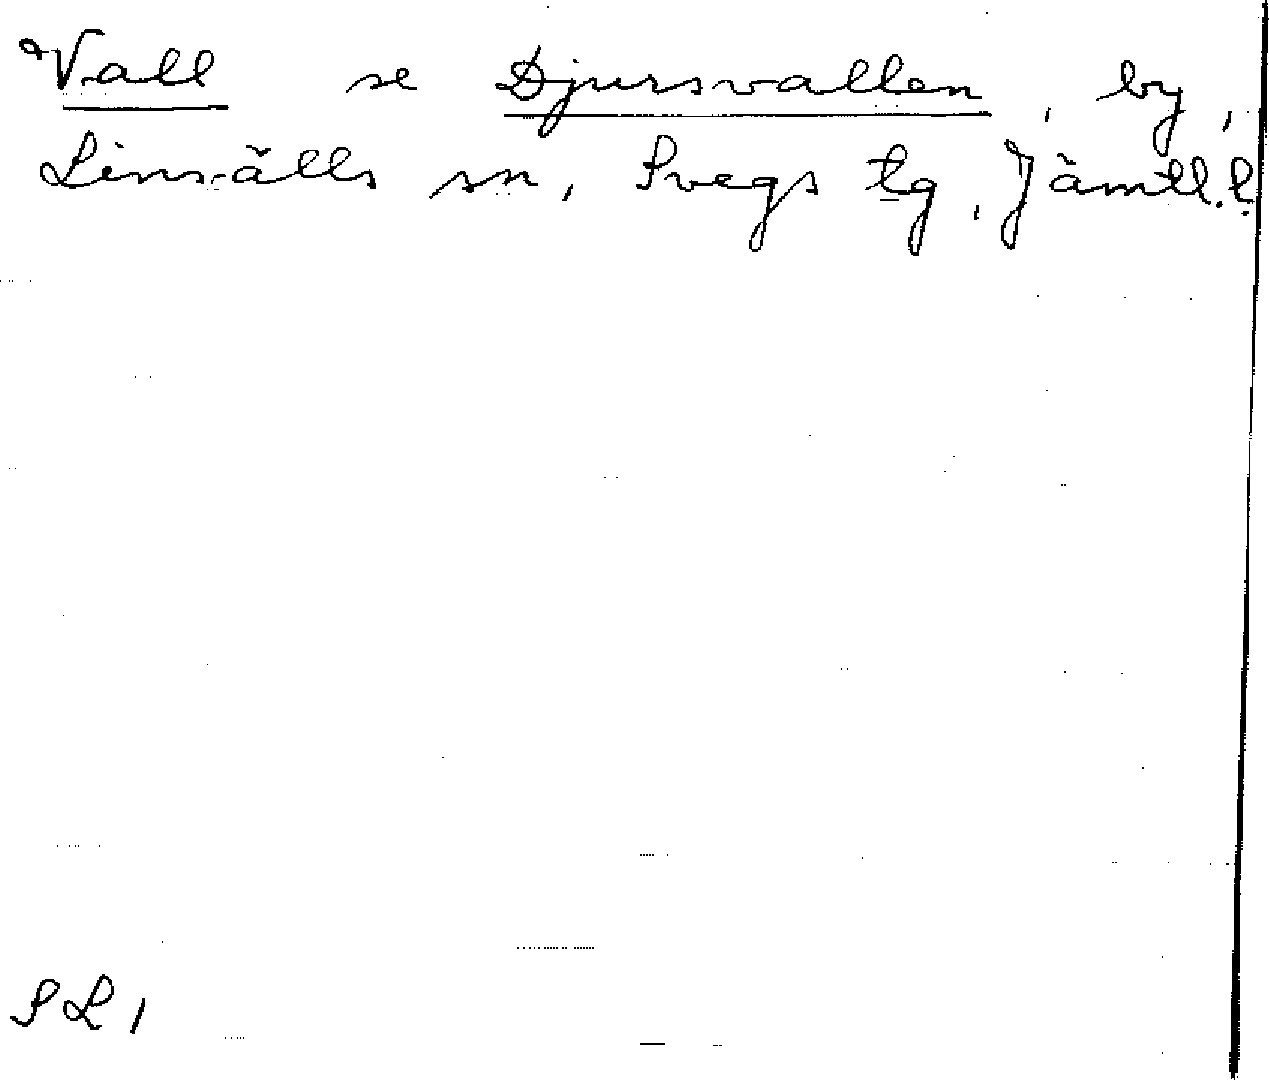 Vall se Djursvallen, by,
Linsälls sn, Svegs tg, Jämtl. l.
SL,